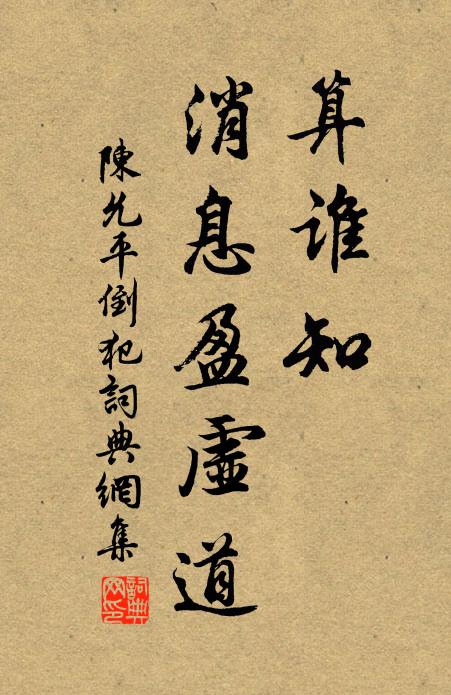 算谁知
消息盈虛道
陳允平倒犯詞典網集
詞典網印